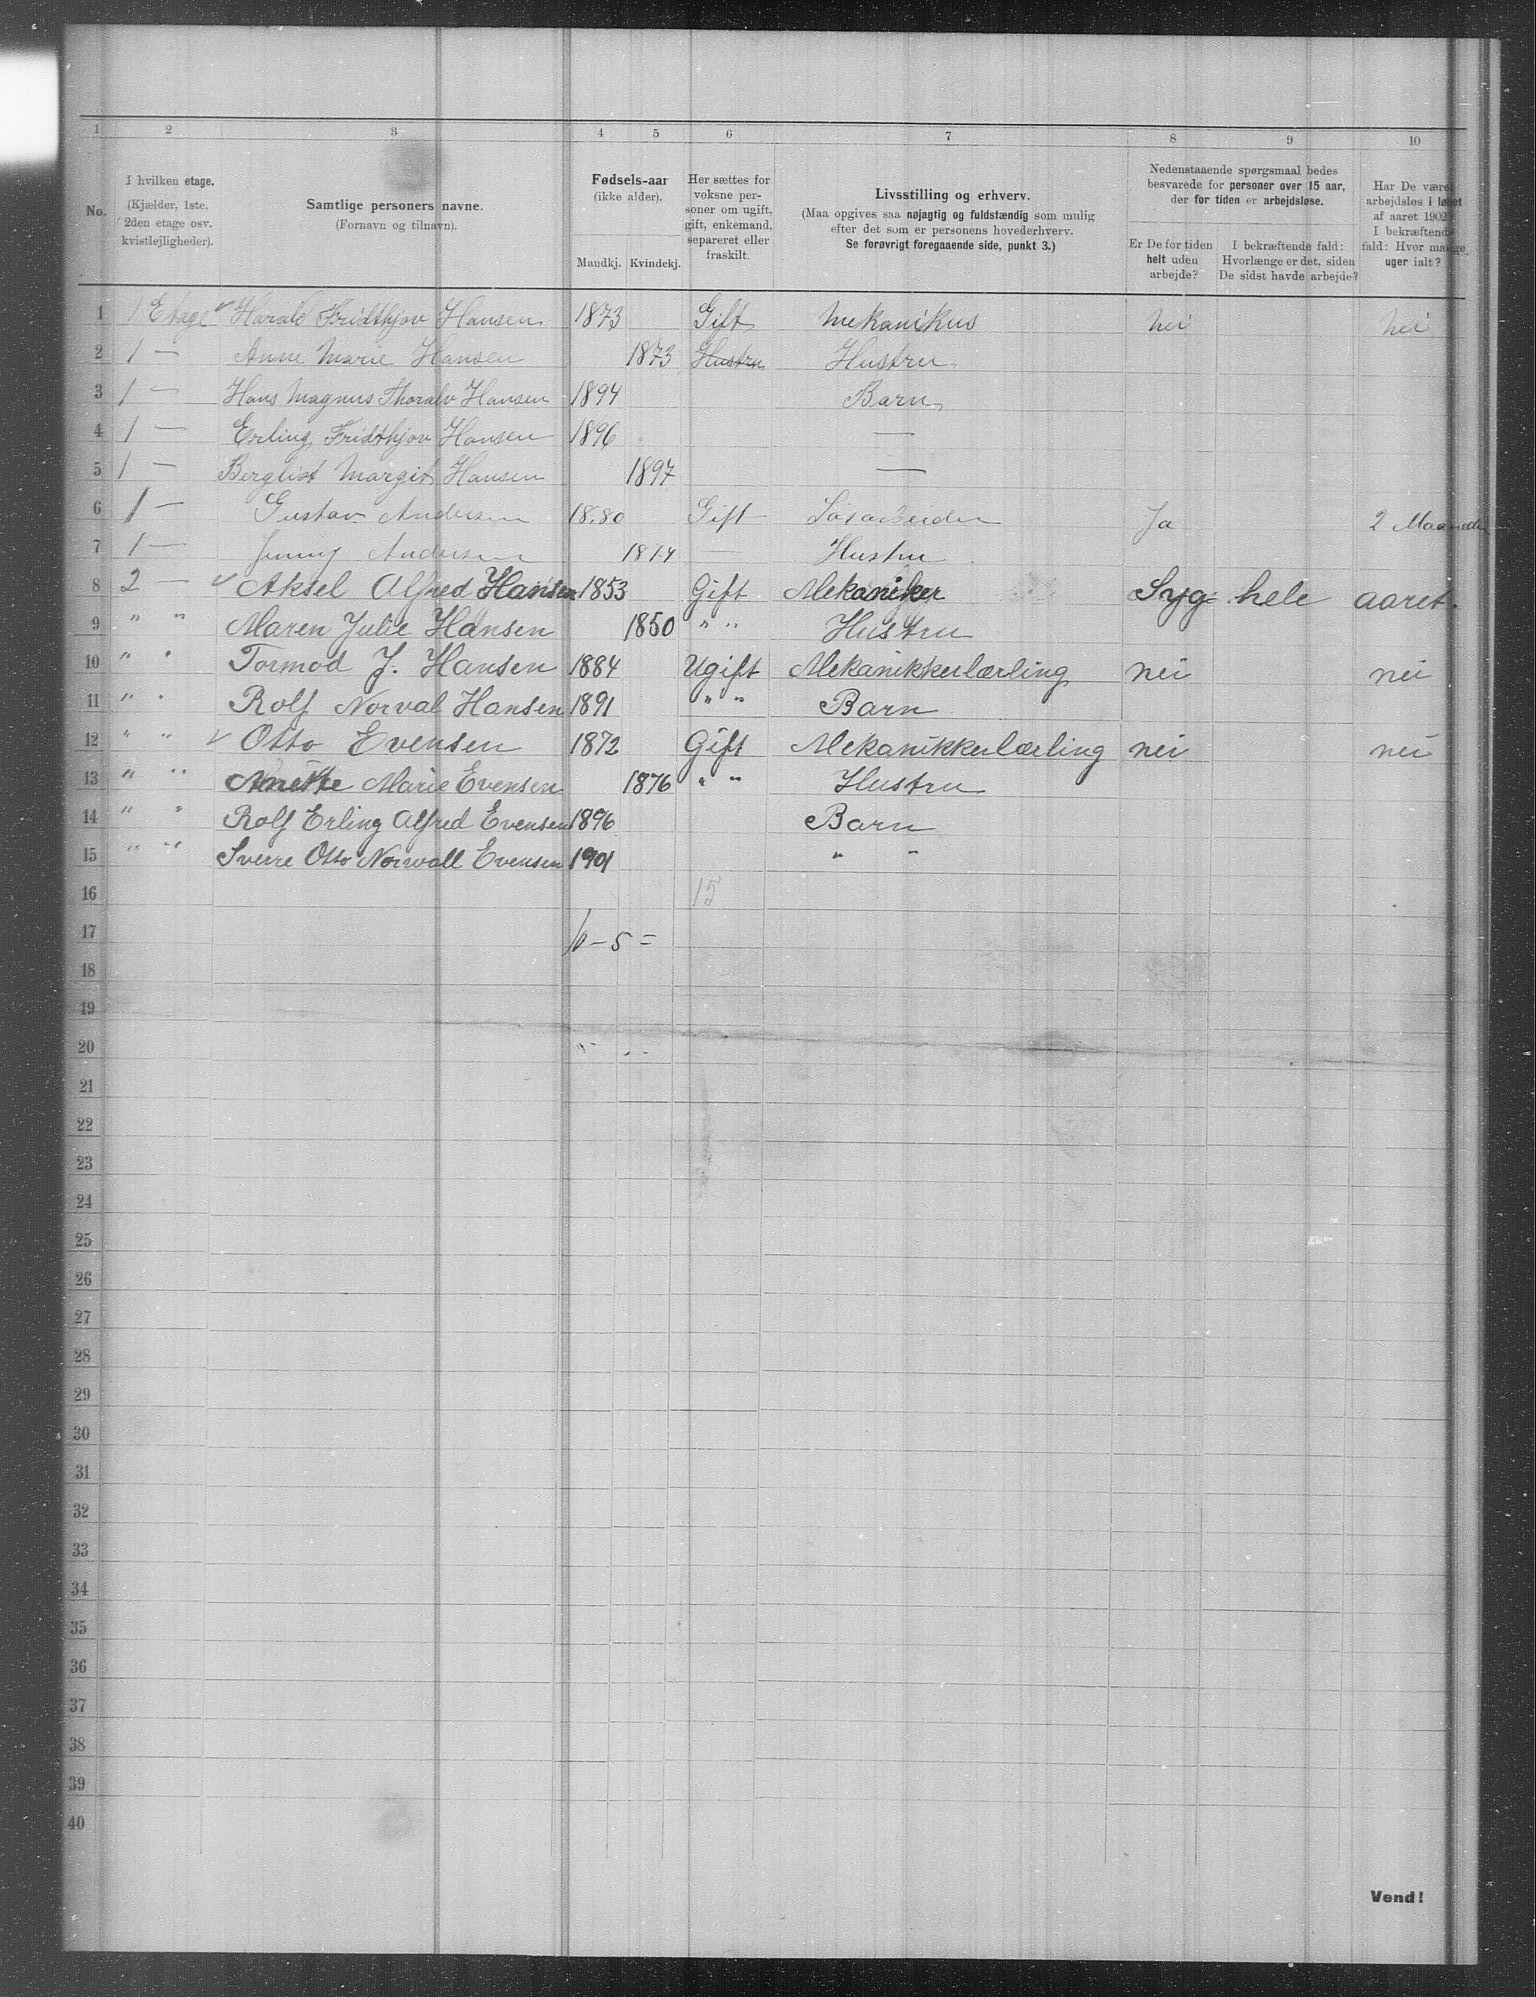 1 2 3 4 5 6 7 8 9 10
No.
I hvilken etage.
(Kjælder, 1ste,
2den etage osv.
kvistlejligheder).
Samtlige personers navne.
(Fornavn og tilnavn).
Fødsels-aar
(ikke alder).
Mandkj. Kvindekj.
Her sættes for
voksne per-
soner om ugift,
gift, enkemand,
separeret eller
fraskilt.
Livsstilling og erhverv.
(Maa opgives saa nøjagtig og fuldstændig som mulig
efter det som er personens hovederhverv.
Se forøvrigt foregaaende side, punkt 3.)
Nedenstaaende spørgsmaal bedes
besvarede for personer over 15 aar,
der for tiden er arbejdsløse.
Er De for tiden
helt uden
arbejde?
I bekræftende fald:
Hvorlænge er det, siden
De sidst havde arbejde?
Har De været
arbejdsløs i løbet
af aaret 1902?
I bekræftende
fald: Hvor mange
uger ialt?
1 1 Etage Harald Fridthjov Hansen 1873 Gift Mekanikus nei nei
2 1 — Anne Marie Hansen 1873 Hustru Hustru
3 1 — Hans Magnus Thoralv Hansen 1894 Barn
4 1 — Erling Fridthjov Hansen 1896 —
5 1 — Bergliot Margit Hansen 1897 —
6 1 — Gustav Andersen 1880 Gift Løsarbeider Ja 2 Maaneder
7 1 — Jenny Andersen 1874 — Hustru
8 2 — Aksel Alfred Hansen 1853 Gift Mekaniker Syg hele aaret.
9 " " Maren Julie Hansen 1850 " " Hustru
10 " " Tormod J. Hansen 1884 Ugift Mekanikkerlærling nei nei
11 " " Rolf Norval Hansen 1891 " " Barn
12 " " Otto Evensen 1872 Gift Mekanikkerlærling nei nei
13 " " Anette Marie Evensen 1876 " " Hustru
14 " " Rolf Erling Alfred Evensen 1896 Barn
15 " " Sverre Otto Norwall Evensen 1901 " "
16 15
17 10 – 5 =
18
19
20
21
22
23
24
25
26
27
28
29
30
31
32
33
34
35
36
37
38
39
40
Vend!